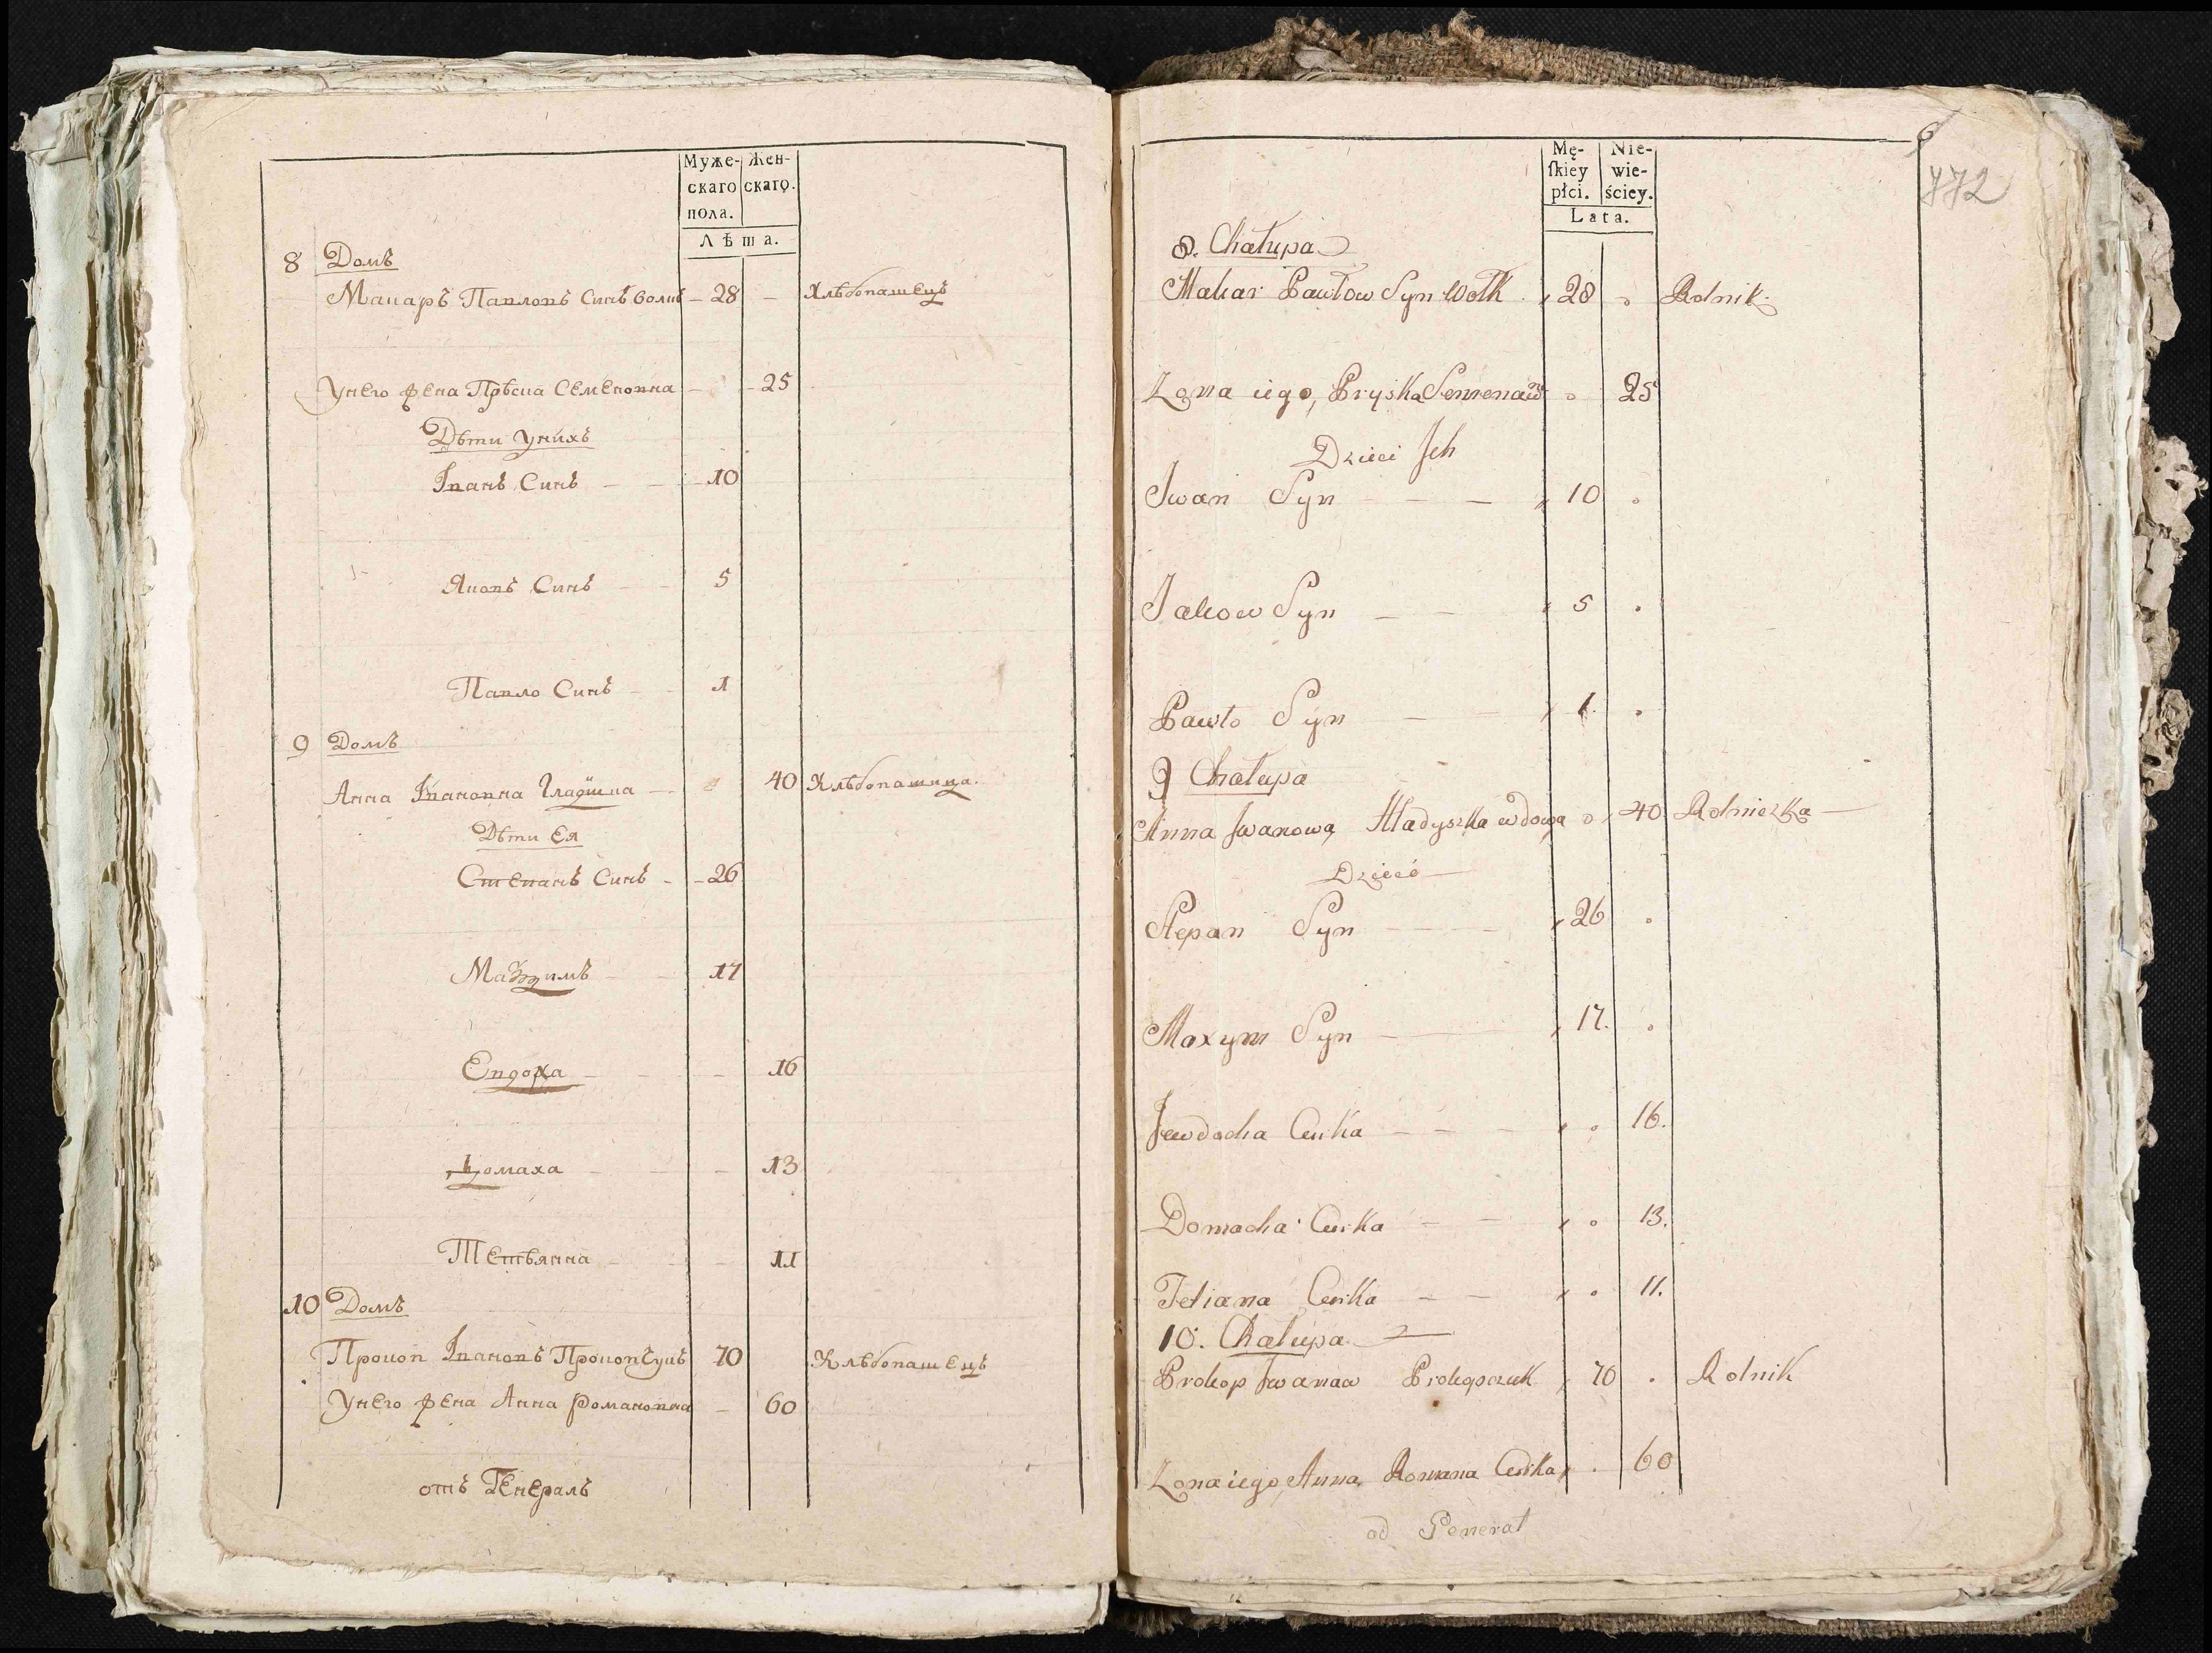 Муже- Жен-
скаго скаго.
пола.
Лѣта.
8 Домъ
Макаръ Павловъ Синъ Волкъ – 28 – Хлѣбопашецъ
Унего жена Прѣска Семеновна – – 25
Дѣти унихъ
Іванъ Синъ – – 10
Яковъ Синъ – – 5
Павло Синъ – – 1
9 Домъ
Анна Івановна Гладишка – 40 Хлѣбопашица.
Дѣти Ея
Степанъ Синъ – – 26
Мадимъ – – 17
Евдоха – – – 16
Домаха – – – 13
Тетьянна – – – 11
10 Домъ
Прокоп Івановъ Прокопчукъ 70 Хлѣбопашецъ
Унего жена Анна Романовна – 60
отъ Генералъ
6
772
Mę- Nie-
ſkiey wie-
płci. ściey.
Lata.
8. Chałupa
Makar Pawłow Syn Wołk 28 Rolnik.
Zona iego, Pryska Semenaw 25
Dzieci Jch
Jwan Syn – – – 10
Jakow Syn – – 5
Pawło Syn – – 1.
9 Chałupa
Anna Jwanowa Hładyszka wdowa 40 Rolniczka –
Dzieci
Stepan Syn – – – 26
Maxym Syn – – 17.
Jewdocha Curka – – – 16.
Domacha Curka – – 13.
Tetiana Curka – – 11.
10. Chałupa
Prokop Jwanaw Prokopczuk 70 Rolnik
Zona iego, Anna Romana Curka 60
od Generał